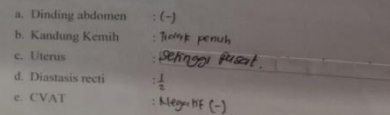 a. Dinding abdomen : (-)
b. Kandung Kemih : Tidak penuh
c. Uterus : Setinggi pusat.
d. Diastasis recti : 1/2
e. CVAT : Negatif (-)